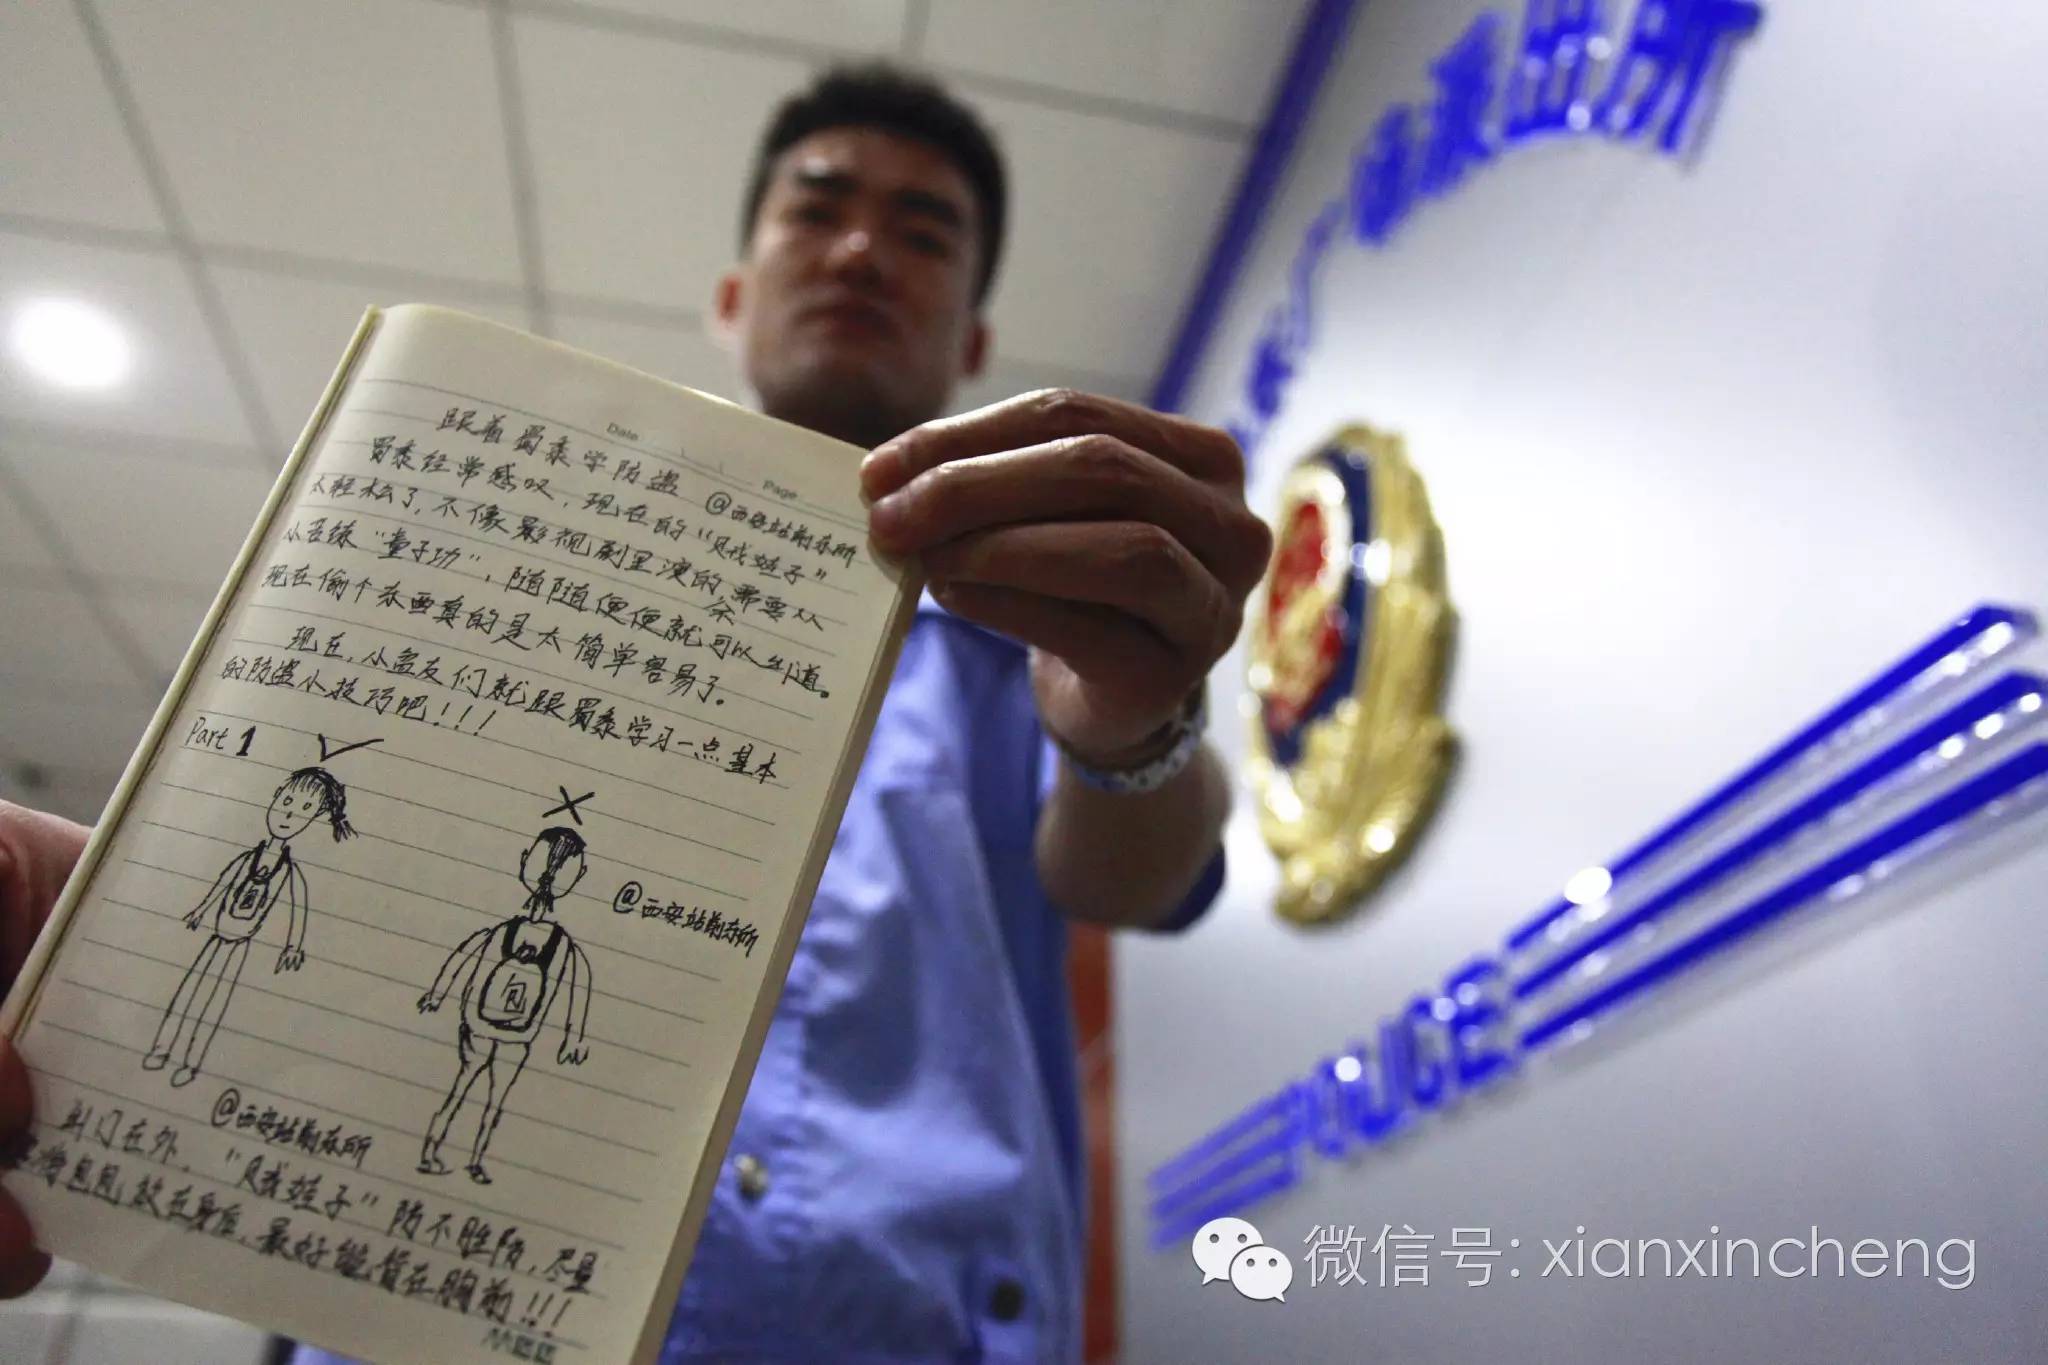 派出所
Date
Page
跟着蜀黍学防盗
@西安站前派出所
蜀黍经常感叹，现在的“贼娃子”
太轻松了，不像影视剧里演的，需要从
小苦练“童子功”，随随便便就可以出道。
现在偷个东西真的是太简单容易了。
现在，小盆友们就跟蜀黍学习一点基本
的防盗小技巧吧！！！
Part 1
包
包
@西安站前派出所
@西安站前派出所
出门在外，“贼娃子”防不胜防，尽量
将包包放在身后，最好能背在胸前！！！
POLICE
微信号: xianxincheng